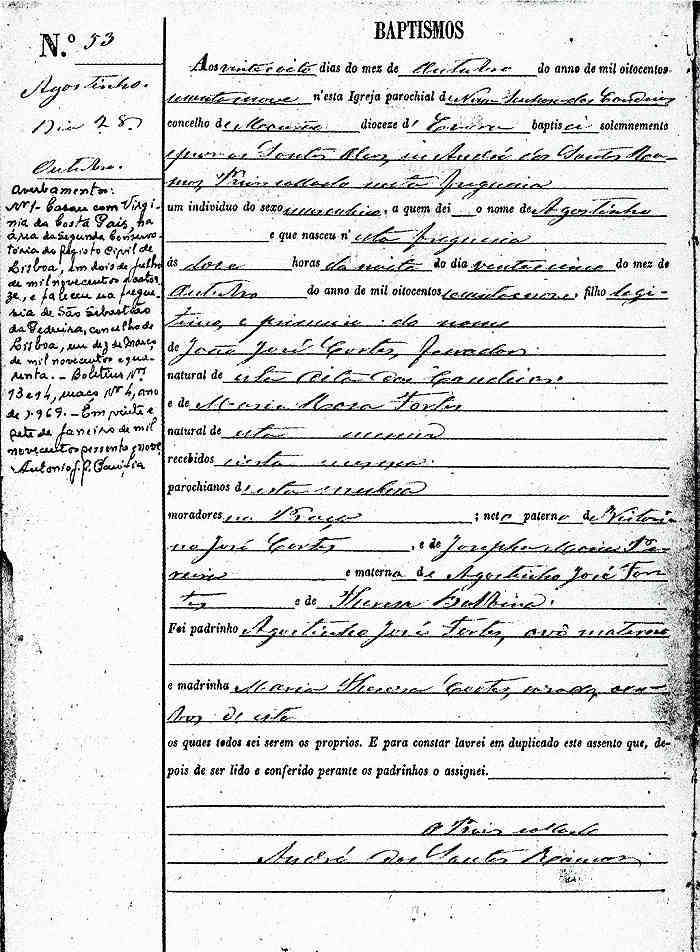 BAPTISMOS
N.º 53
Agostinho.
Dia 28.
Outubro.
Averbamentos:
Nº 1- Casou com Virgi-
nia da Costa Pais, na
área da Segunda Conserva-
tória do Registo Civil de
Lisboa, em dois de julho
de mil novecentos e cator-
ze, e faleceu na fregue-
sia de São Sebastião
da Pedreira, concelho de
Lisboa, em dez de Março
de mil novecentos e qua-
renta. - Boletins Nºs
13 e 14, maço Nº 4, ano
de 1969. - Em vinte e
sete de janeiro de mil
novecentos sessenta e nove
Antonio J. P.
Aos vinte oito dias do mez de Outubro do anno de mil oitocentos
e n'esta Igreja parochial de Nossa Senhora das Candeias
concelho de Mourão dioceze d' Evora baptisei solemnemente
Santos Oleos, eu André dos Santos Ra-
mos, Prior collado nesta freguesia
um individuo do sexo masculino, a quem dei o nome de Agostinho
e que nasceu n'esta freguesia
ás doze horas da noite do dia vinte cinco do mez de
Outubro do anno de mil oitocentos filho legi-
timo, e primeiro do nome
de João José Cortes,
natural de esta das Candeias:
e de Maria Rosa Fortes
natural de esta mesma
recebidos nesta mesma
parochianos d'esta mesma
moradores na Praça ; neto paterno de Victori-
no José Cortes, e de Josepha Maria Pe-
reira e materno de Agostinho José For-
tes e de Theresa Balbina:
Foi padrinho Agostinho José Fortes, avô materno
e madrinha Maria Theresa Cortes, am-
bos de esta
os quaes todos sei serem os proprios. E para constar lavrei em duplicado este assento que, de-
pois de ser lido e conferido perante os padrinhos o assignei.
O Prior collado
André dos Santos Ramos